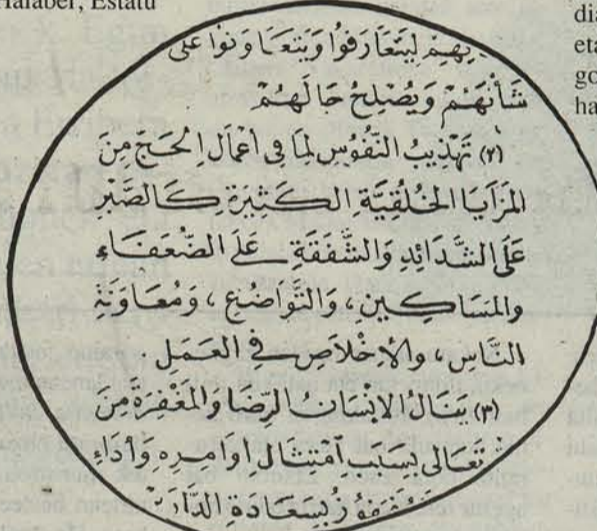 Harabel, Estatu
dia
eta
go
ha
لِيَتَعَارَفُوا وَيَتَعَاوَنُوا عَلَى
شَأْنَهُمْ وَيُصْلِحُ حَالَهُمْ
(٢) تَهْذِيبُ النُّفُوسِ لِمَا فِى أَعْمَالِ الْحَجِّ مِنَ
المَزَايَا الخُلُقِيَّةِ الكَثِيرَةِ كَالصَّبْرِ
عَلَى الشَّدَائِدِ وَالشَّفَقَةِ عَلَى الضُّعَفَاءِ
والمَسَاكِينِ، والتَّوَاضُعِ، وَمُعَاوَنَةِ
النَّاسِ، والإِخْلَاصِ فِي العَمَلِ.
(٣) يَنَالُ الإِنْسَانُ الرِّضَا وَالمَغْفِرَةَ مِنَ
تَعَالَى بِسَبَبِ امْتِثَالِ أَوَامِرِهِ وَأَدَاءِ